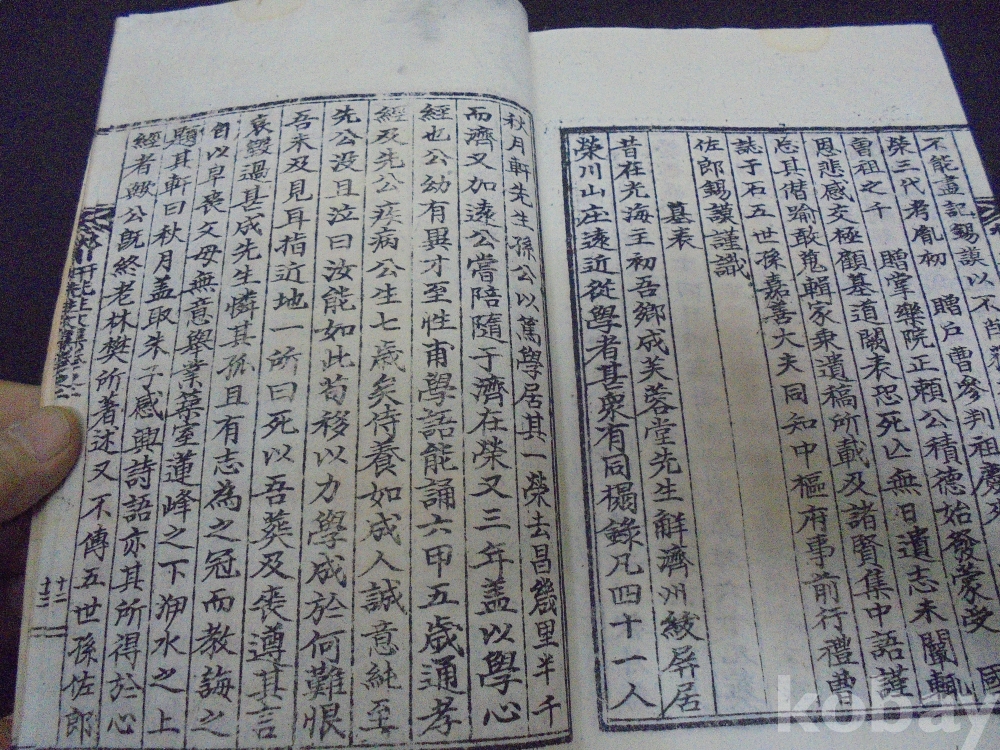 不能盡記錫謨以不
榮三代考胤初 贈戶曹參判祖慶
曾祖之千 贈掌樂院正賴公積德始發蒙受 國
恩悲感交極顧墓道闕表恐死亡無日遺志未闡輒
忘其僭踰敢蒐輯家乘遺稿所載及諸賢集中語謹
誌于石五世孫嘉善大夫同知中樞府事前行禮曹
佐郎錫謨謹識
墓表
昔在光海王初吾鄉成芙蓉堂先生解濟州綬屏居
榮川山庄遠近從學者甚衆有同榻錄凡四十一人
秋月軒先生孫公以篤學居其一榮去昌幾里半千
而濟又加遠公嘗陪隨于濟在榮又三年盖以學心
經也公幼有異才至性甫學語能誦六甲五歲通孝
經及先公疾病公生七歲矣侍養如成人誠意純至
先公沒且泣曰汝能如此苟移以力學成於何難恨
吾未及見耳指近地一所曰死以吾葬及喪遵其言
哀戀過甚成先生憐其孤且有志為之冠而教誨之
自以早喪父母無意擧業築室蓮峰之下泖水之上
題其軒曰秋月盖取朱子感興詩語亦其所得於心
經者歟公旣終老林樊所著述又不傳五世孫佐郎
kobay